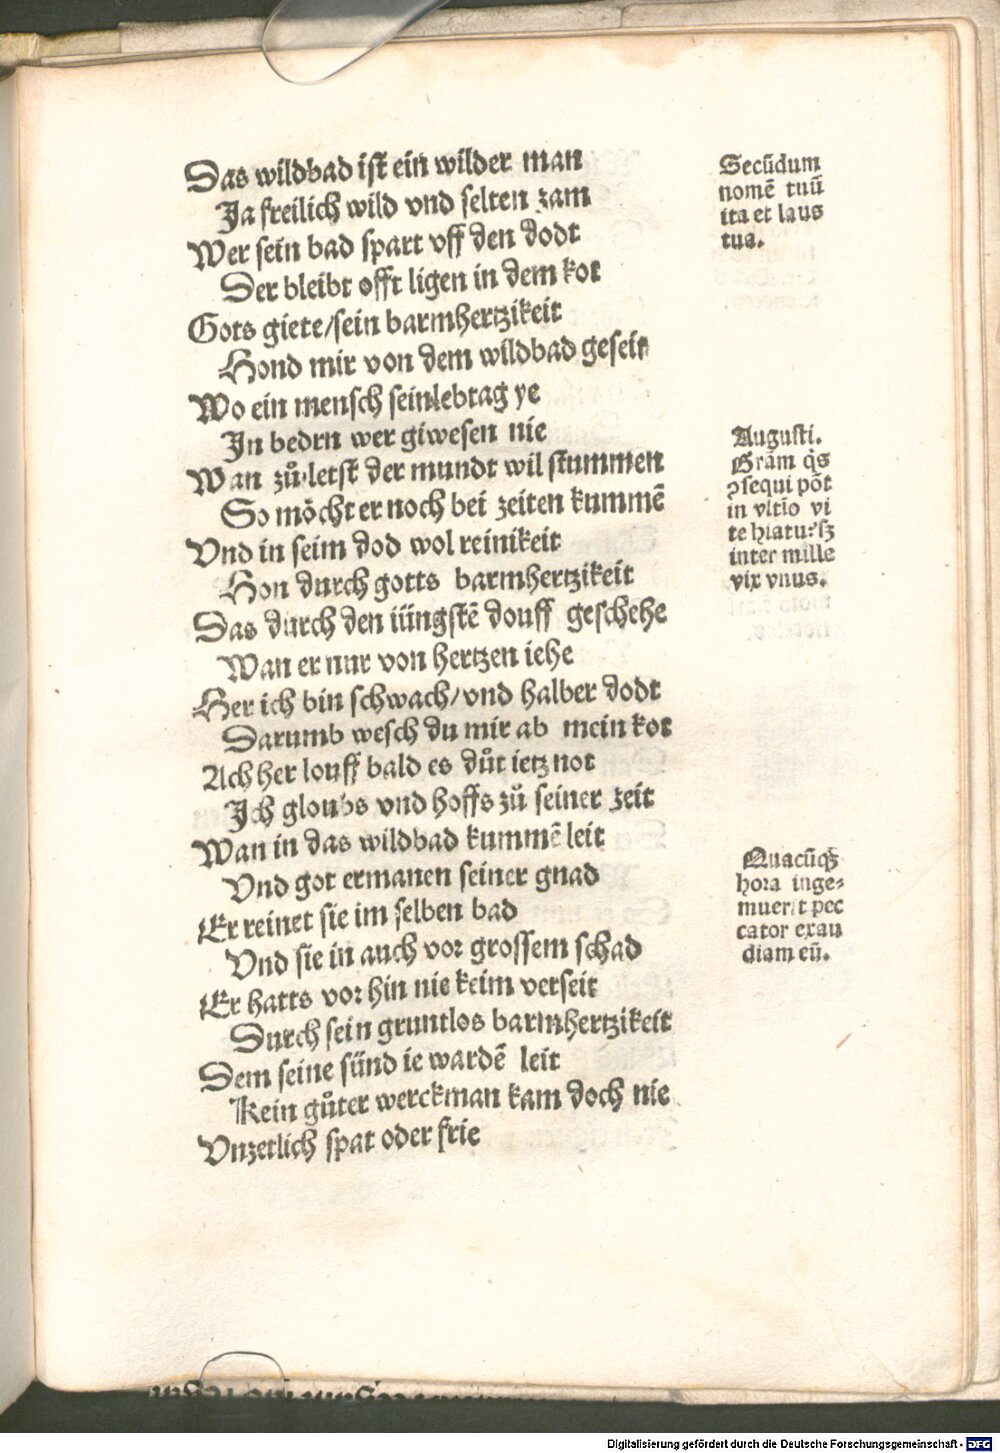 Das wildbad ist ein wilder man
Ja freilich wild vnd selten zam
Wer sein bad spart vff den dodt
Der bleibt offt ligen in dem kot
Gots giete/sein barmhertzikeit
Hond mir von dem wildbad geseit
Wo ein mensch sein lebtag ye
In bedrn wer giwesen nie
Wan zů letst der mundt wil stummen
So möcht er noch bei zeiten kummē
Vnd in seim dod wol reinikeit
Hon durch gotts barmhertzikeit
Das durch den iüngstē douff geschehe
Wan er nur von hertzen iehe
Her ich bin schwach/vnd halber dodt
Darumb wesch du mir ab mein kot
Ach her louff bald es důt ietz not
Ich gloubs vnd hoffs zů seiner zeit
Wan in das wildbad kummē leit
Vnd got ermanen seiner gnad
Er reinet sie im selben bad
Vnd sie in auch vor grossem schad
Er hatts vor hin nie keim verseit
Durch sein gruntlos barmhertzikeit
Dem seine sünd ie wardē leit
Kein gůter werckman kam doch nie
Vnzetlich spat oder frie
Secūdum
nomē tuū
ita et laus
tua.
Augusti.
Grām q̄s
ꝯsequi pōt
in vltīo vi
te hiatu:sꝫ
inter mille
vix vnus.
Quacūqꝫ
hora inge⸗
muerit pec
cator exau
diam eū.
Digitalisierung gefördert durch die Deutsche Forschungsgemeinschaft - DFG